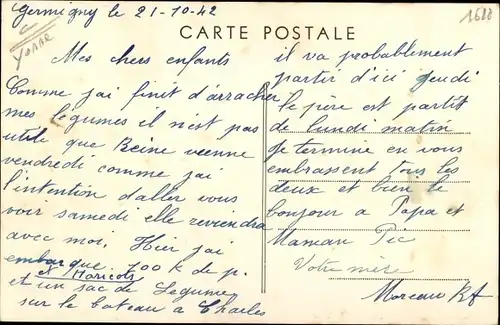 Germigny le 21-10-42
1688
Yonne
CARTE POSTALE
Mes chers enfants
Comme jai finit d'arracher
mes légumes il n'est pas
utile que Reine vienne
vendredi comme jai
l'intention d'aller vous
voir samedi elle reviendra
avec moi. Hier jai
embarque 700 K de p.
et Haricots
et un sac de Legume
sur le bateau a Charles
il va probablement
partir d'ici jeudi
le pere est partit
de lundi matin
Je termine en vous
embrassent tous les
deux et bien le
bonjour a Papa et
Maman Pic
Votre mère
Moreau